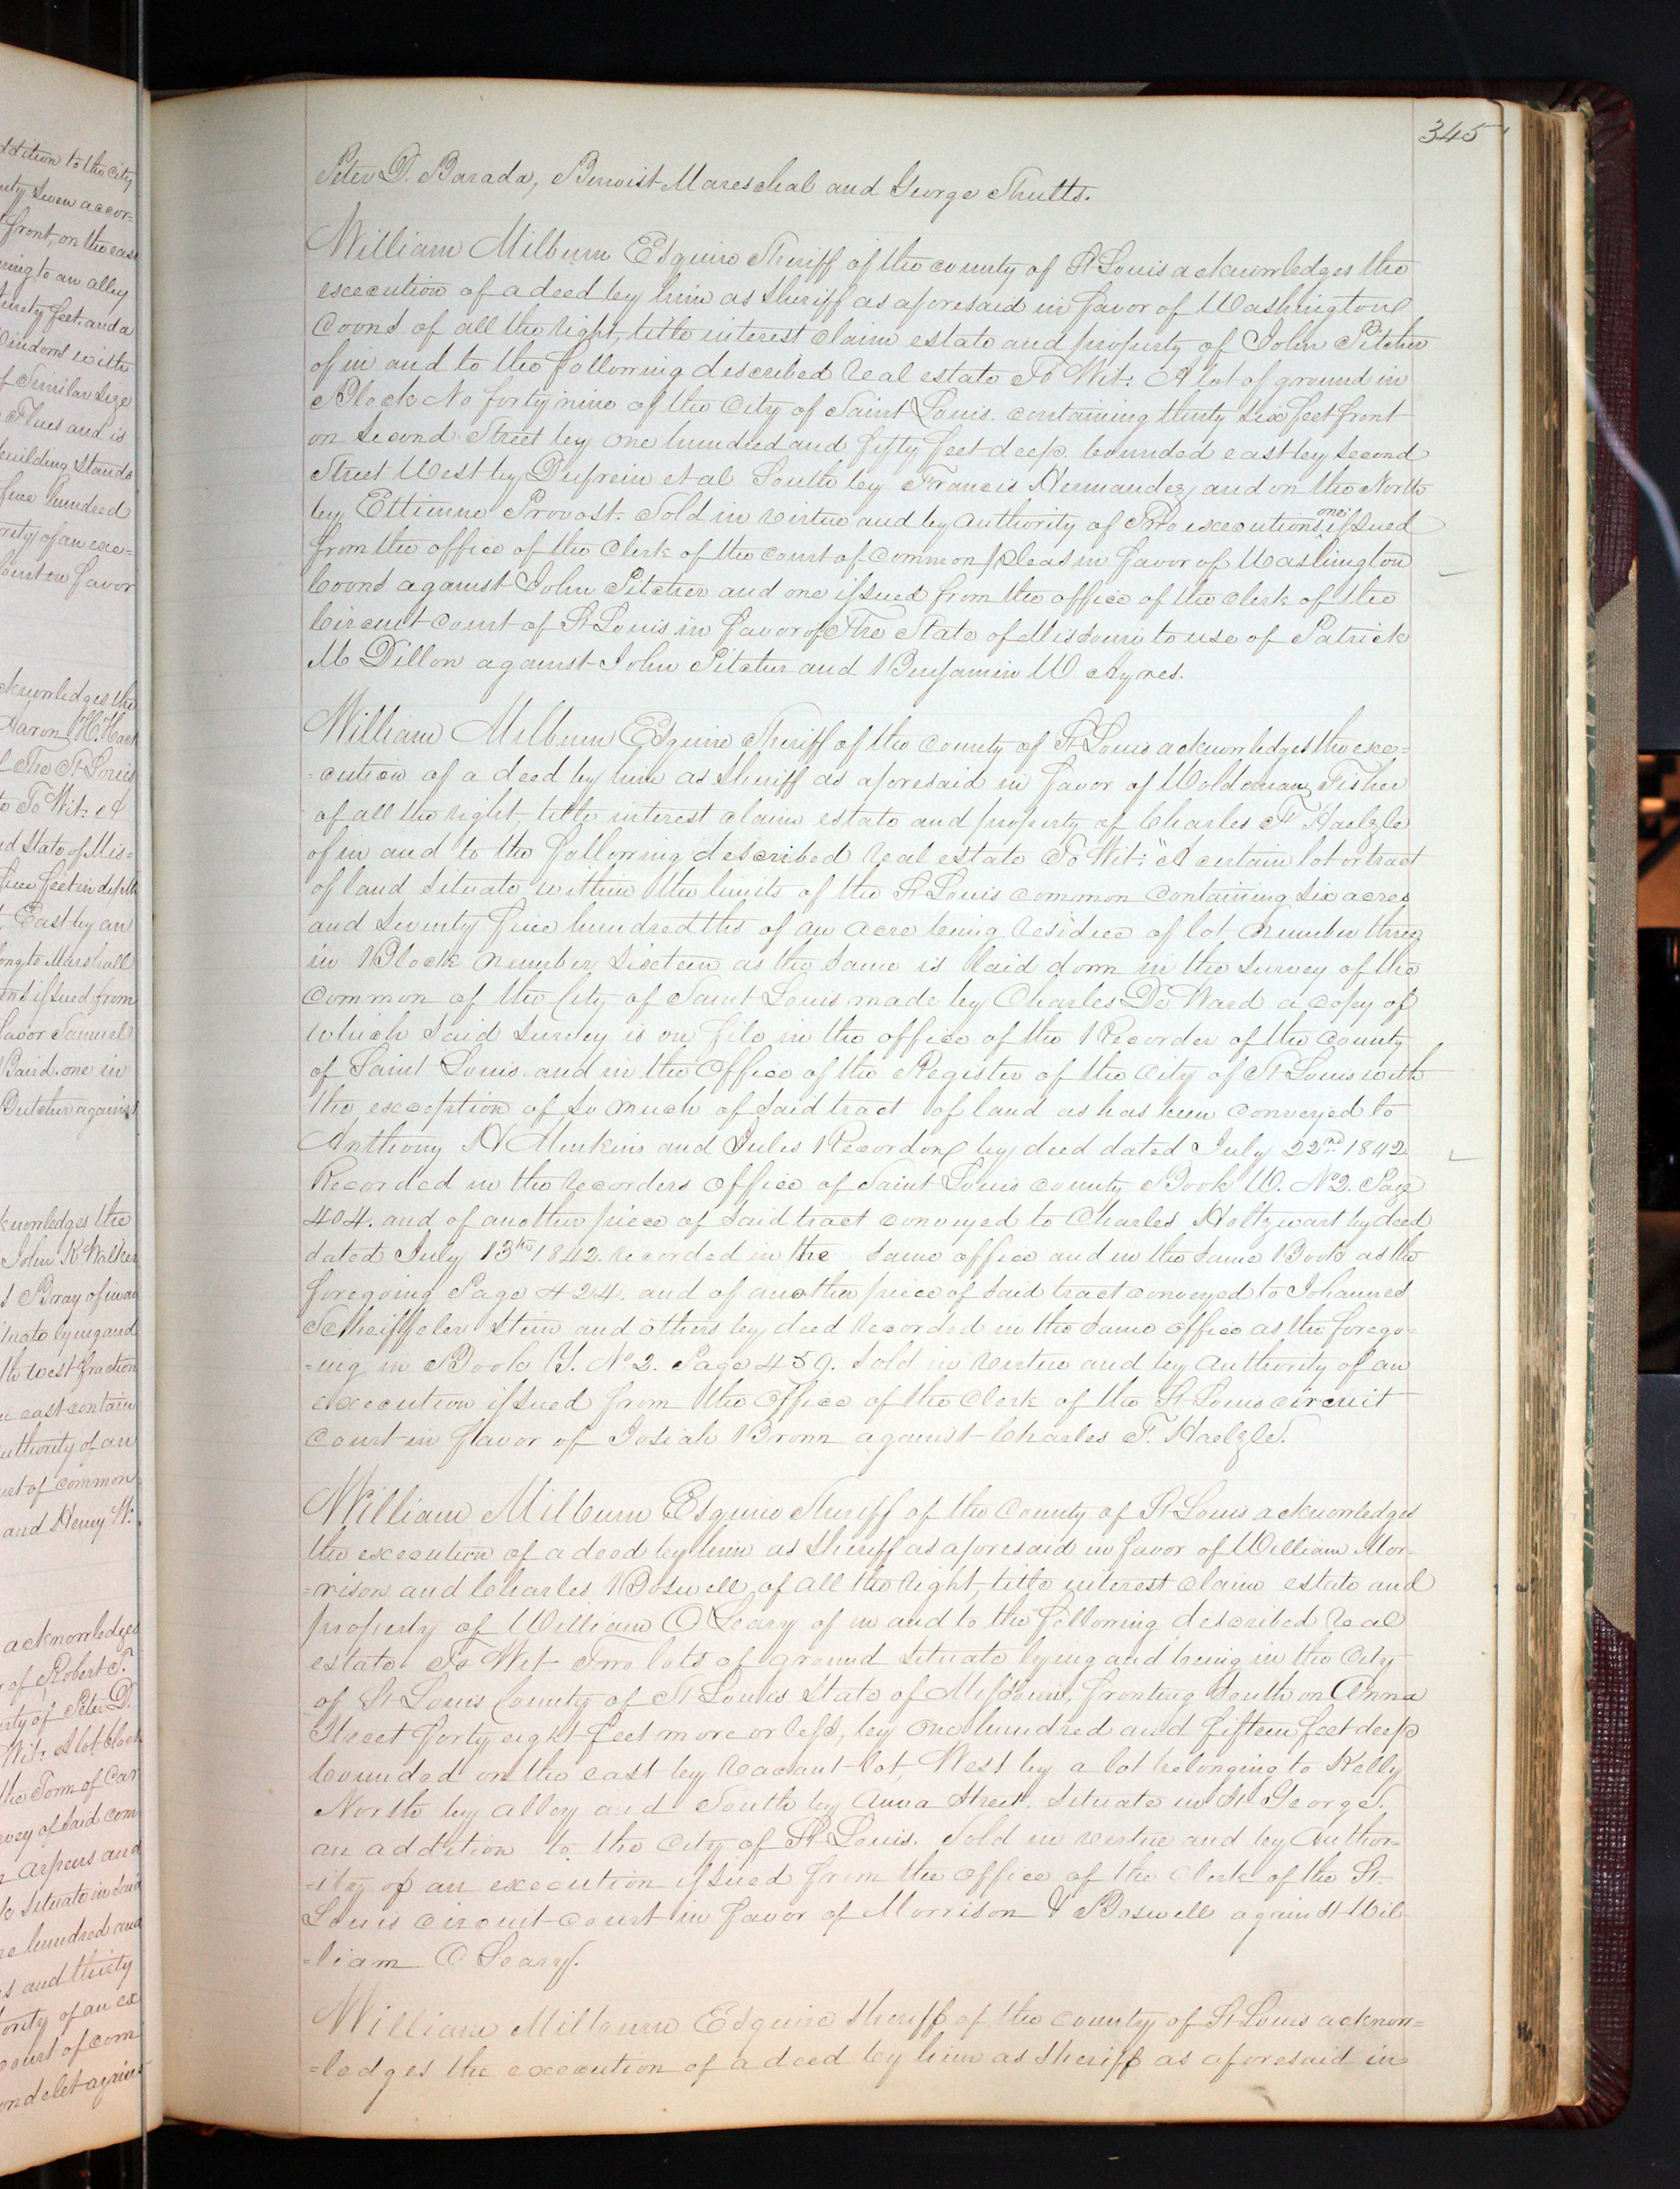 ddition to the City
nty Seven accor=
front, on the east
ning to an alley
ninety feet. and a
f Similar Size
Flues and is
building Stands
five hundred
ority of an exe=
Court in favor
cknowledges the
Aaron H. Hart
The St Louis
to To Wit: A
nd State of Mis=
five feet in depth
East by an
ong to Marshall
issued from
favor Samuel
Baird. one in
Dutcher against
knowledges the
John K Walker
Bray of in an
ituate lying and
th west fraction
east contain
uthority of an
urt of common
and Henry W.
acknowledges
of Robert T.
erty of Peter D.
Wit: A lot block
the Town of Car
rvey of Said com
arpens and
Situate in Said
e hundred and
s and thirty
ority of an ex
court of com
ondelet against
345
Peter D. Barada, Benoist Mareschal and George Shults.
William Milburn Esquire Sheriff of the county of St Louis acknowledges the
execution of a deed by him as Sheriff as aforesaid in favor of Washington
Coons of all the right, title interest claim estate and property of John Pitcher
of in and to the following described real estate To Wit: A lot of ground in
Block No forty nine of the City of Saint Louis. containing thirty Six feet front
on Second Street by one hundred and fifty feet deep. bounded east by Second
Street West by Dufrein et al South by Francis Hernandez, and on the North
by Ettienne Provost. Sold in virtue and by authority of Two executions, one issued
from the office of the Clerk of the court of common pleas in favor of Washington
Coons against John Pitcher and one issued from the office of the clerk of the
Circuit Court of St Louis in favor of The State of Missouri to use of Patrick
M Dillon against John Pitcher and Benjamin W Ayres.
William Milburn Esquire Sheriff of the County of St Louis acknowledges the exe=
=cution of a deed by him as Sheriff as aforesaid in favor of Woldemar Fisher
of all the right, title interest claim estate and property of Charles F Haelzle
of in and to the following described real estate To Wit: "A certain lot or tract
of land Situate within the limits of the St Louis common containing Six acres
and Seventy five hundredths of an acre being residue of lot number three
in Block number Sixteen as the Same is laid down in the Survey of the
Common of the City of Saint Louis made by Charles De Ward a copy of
which Said Survey is on file in the office of the Recorder of the County
of Saint Louis. and in the Office of the Register of the City of St Louis with
the exception of So much of Said tract of land as has been conveyed to
Anthony H Menkins and Jules Recordon by deed dated July 22nd 1842
Recorded in the recorders office of Saint Louis county Book W. No 2. Page
404. and of another piece of Said tract conveyed to Charles Holtzwart by deed
dated July 13th 1842. recorded in the Same office and in the Same Book as the
foregoing Page 424. and of another piece of Said tract conveyed to Johannes
Scheiffeler Stein and others by deed recorded in the Same office as the forego=
=ing in Book Y. No 2. Page 459. Sold in virtue and by authority of an
execution issued from the Office of the Clerk of the St Louis circuit
Court in favor of Josiah Brown against Charles F. Haelzle.
William Milburn Esquire Sheriff of the County of St Louis acknowledges
the execution of a deed by him as Sheriff as aforesaid in favor of William Mor=
=rison and Charles Boswell, of all the right, title interest claim estate and
property of William O Leary of in and to the following described real
estate To Wit Two lots of ground Situate lying and being in the City
of St Louis County of St Louis State of Missouri, fronting South on Anna
Street forty eight feet more or less, by one hundred and fifteen feet deep
bounded on the east by vacant lot, West by a lot belonging to Kelly
North by alley and South by Anna Street, Situate in St George,
an addition to the City of St Louis. Sold in virtue and by Author=
=ity of an execution issued from the office of the Clerk of the St.
Louis circuit court in favor of Morrison & Boswell against Wil
=liam O Leary.
William Milburn Esquire Sheriff of the County of St Louis acknow=
=ledges the execution of a deed by him as Sheriff as aforesaid in